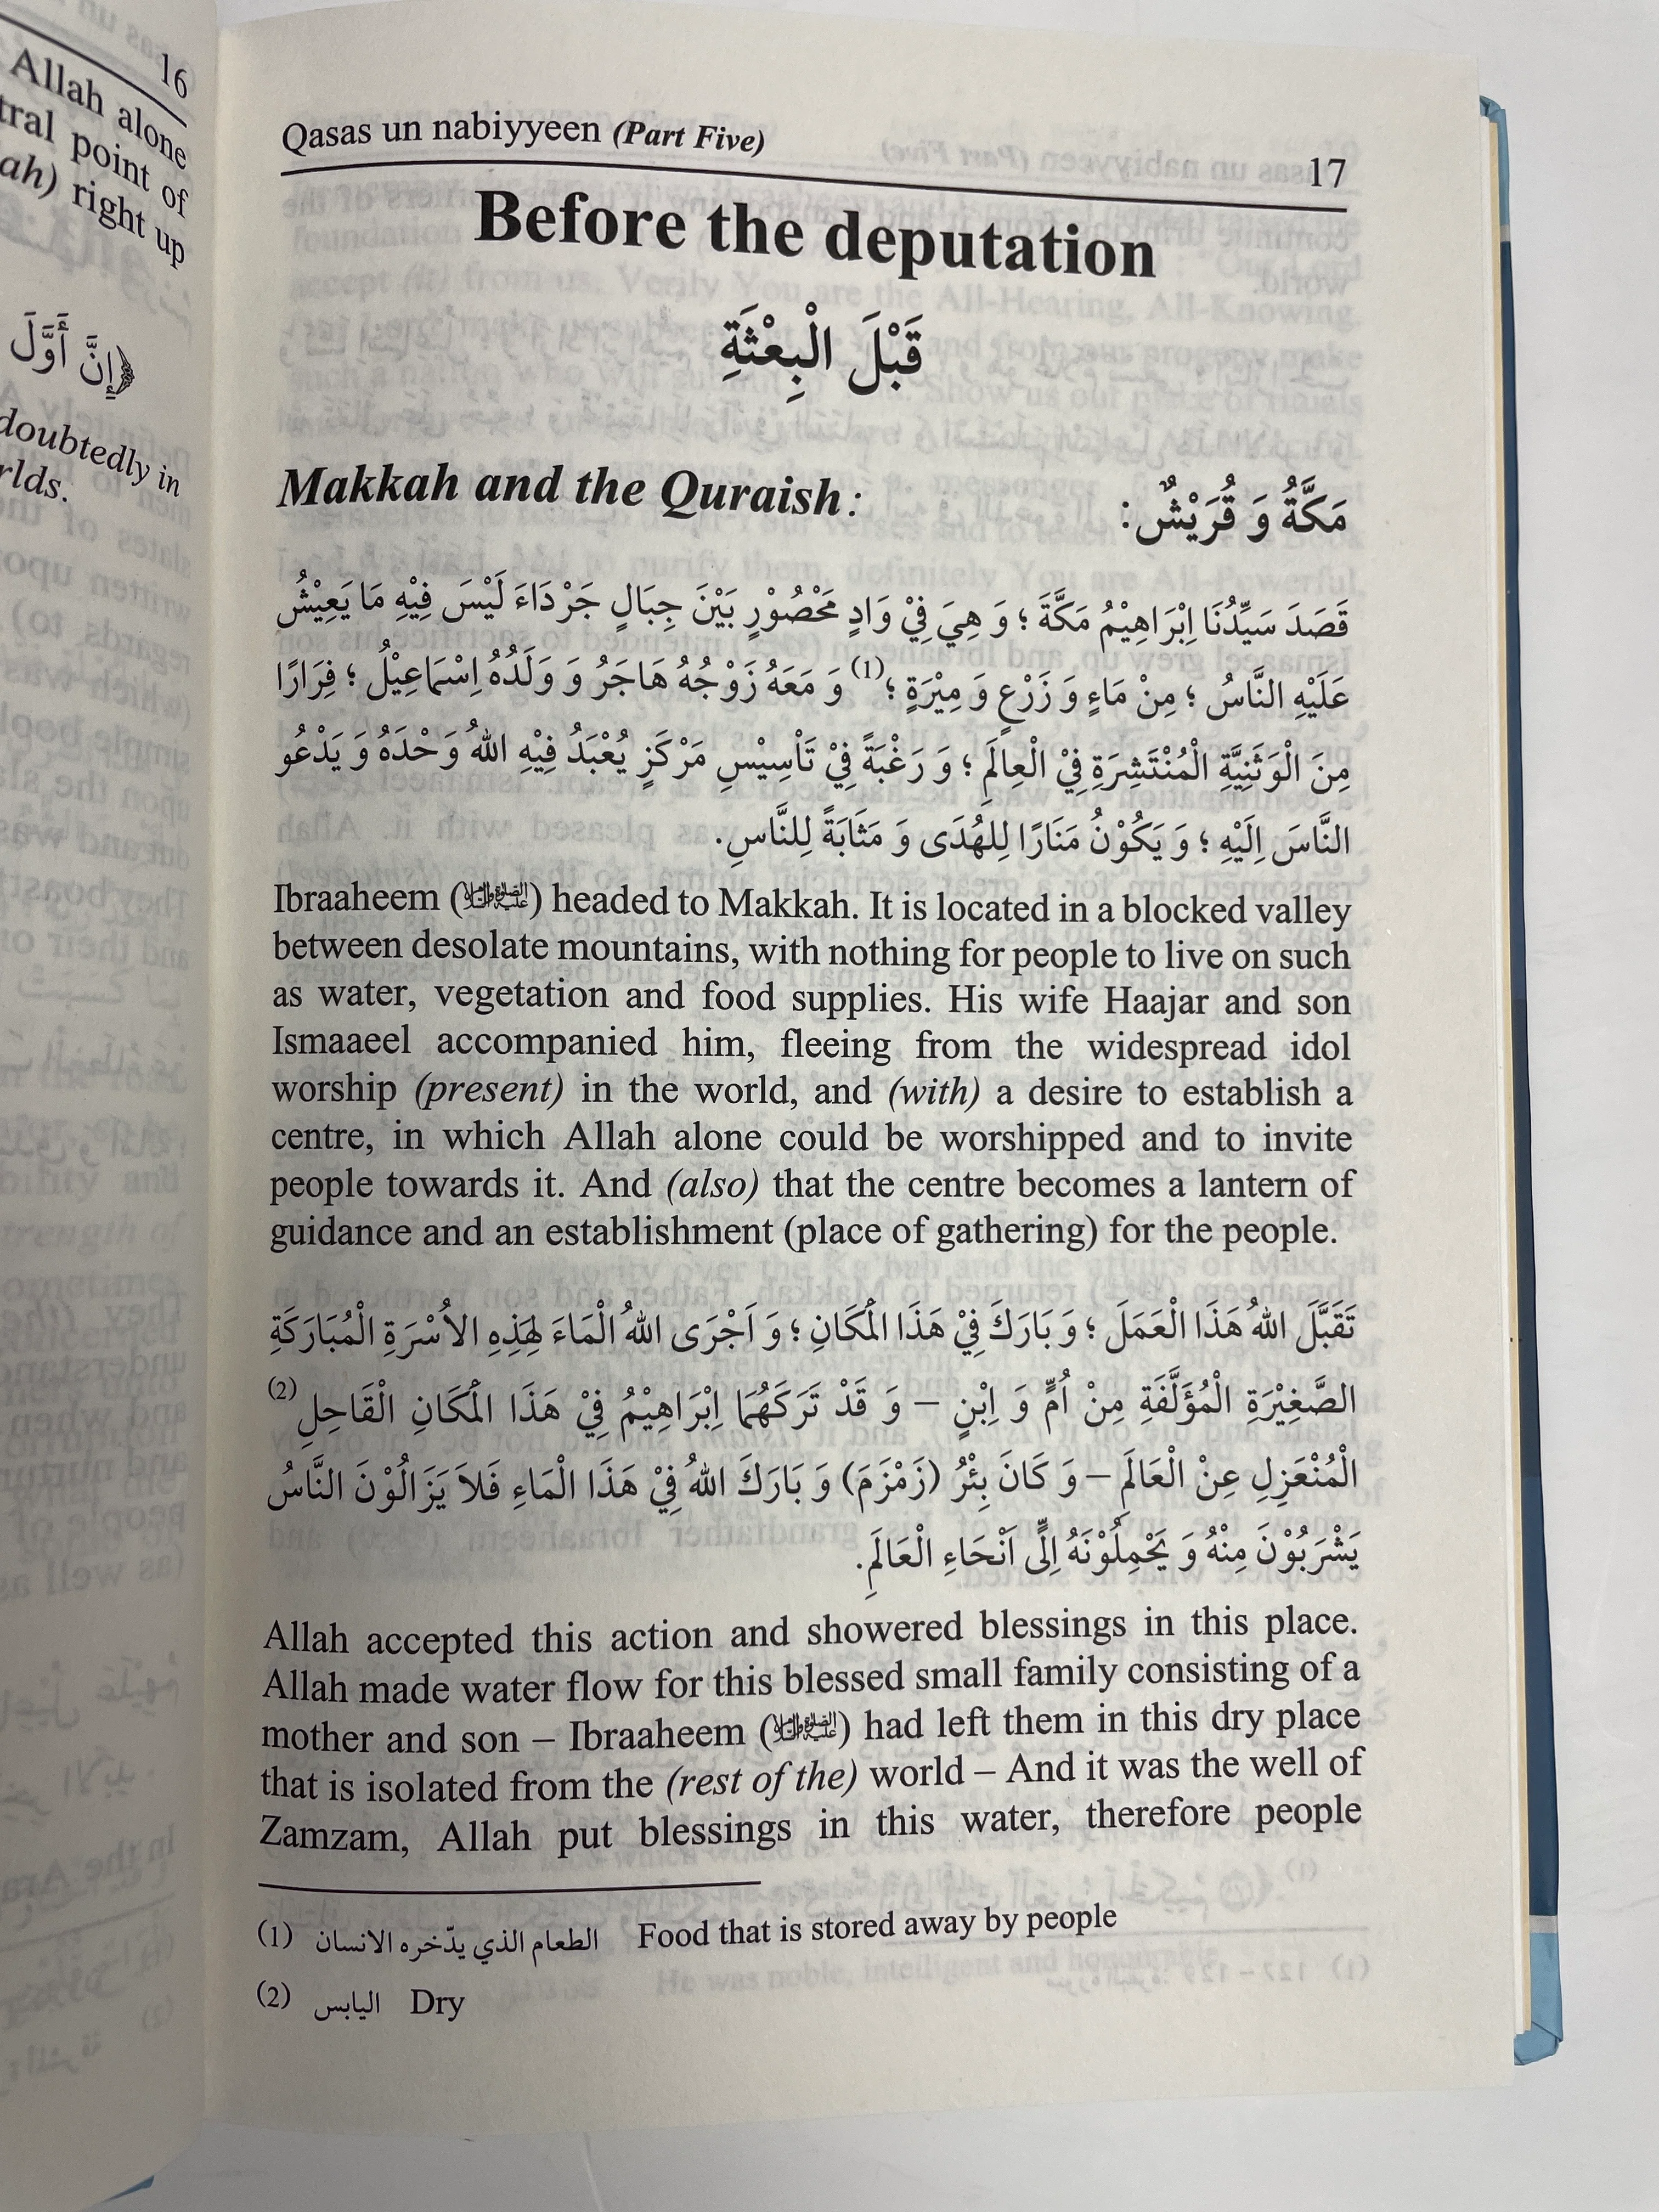 16
Allah alone
tral point of
ah) right up
﴿إِنَّ أَوَّلَ
doubtedly in
rlds.
Qasas un nabiyyeen (Part Five)
17
Before the deputation
قَبْلَ الْبِعْثَةِ
Makkah and the Quraish:
مَكَّةُ وَ قُرَيْشٌ:
قَصَدَ سَيِّدُنَا اِبْرَاهِيْمُ مَكَّةَ ؛ وَ هِيَ فِيْ وَادٍ مَحْصُوْرٍ بَيْنَ جِبَالٍ جَرْدَاءَ لَيْسَ فِيْهِ مَا يَعِيْشُ
عَلَيْهِ النَّاسُ ؛ مِنْ مَاءٍ وَ زَرْعٍ وَ مِيْرَةٍ ؛(1) وَ مَعَهُ زَوْجُهُ هَاجَرُ وَ وَلَدُهُ اِسْمَاعِيْلُ ؛ فِرَارًا
مِنَ الْوَثَنِيَّةِ الْمُنْتَشِرَةِ فِيْ الْعِالَمِ ؛ وَ رَغْبَةً فِيْ تَأْسِيْسِ مَرْكَزٍ يُعْبَدُ فِيْهِ اللهُ وَحْدَهُ وَ يَدْعُو
النَّاسَ اِلَيْهِ ؛ وَ يَكُوْنُ مَنَارًا لِلهُدَى وَ مَثَابَةً لِلنَّاسِ.
Ibraaheem (عليه الصلاة والسلام) headed to Makkah. It is located in a blocked valley
between desolate mountains, with nothing for people to live on such
as water, vegetation and food supplies. His wife Haajar and son
Ismaaeel accompanied him, fleeing from the widespread idol
worship (present) in the world, and (with) a desire to establish a
centre, in which Allah alone could be worshipped and to invite
people towards it. And (also) that the centre becomes a lantern of
guidance and an establishment (place of gathering) for the people.
تَقَبَّلَ اللهُ هَذَا الْعَمَلَ ؛ وَ بَارَكَ فِيْ هَذَا الْمَكَانِ ؛ وَ اَجْرَى اللهُ الْمَاءَ لِهَذِهِ الاُسْرَةِ الْمُبَارَكَةِ
الصَّغِيْرَةِ الْمُؤَلَّفَةِ مِنْ اُمٍّ وَ اِبْنٍ – وَ قَدْ تَرَكَهُمَا اِبْرَاهِيْمُ فِيْ هَذَا الْمَكَانِ الْقَاحِلِ(2)
الْمُنْعَزِلِ عِنْ الْعَالَمِ – وَ كَانَ بِئْرُ (زَمْزَمَ) وَ بَارَكَ اللهُ فِيْ هَذَا الْمَاءِ فَلاَ يَزَالُوْنَ النَّاسُ
يَشْرَبُوْنَ مِنْهُ وَ يَحْمِلُوْنَهُ اِلَى اَنْحَاءِ الْعَالَمِ.
Allah accepted this action and showered blessings in this place.
Allah made water flow for this blessed small family consisting of a
mother and son – Ibraaheem (عليه الصلاة والسلام) had left them in this dry place
that is isolated from the (rest of the) world – And it was the well of
Zamzam, Allah put blessings in this water, therefore people
(1) الطعام الذي يدّخره الانسان Food that is stored away by people
(2) اليابس Dry